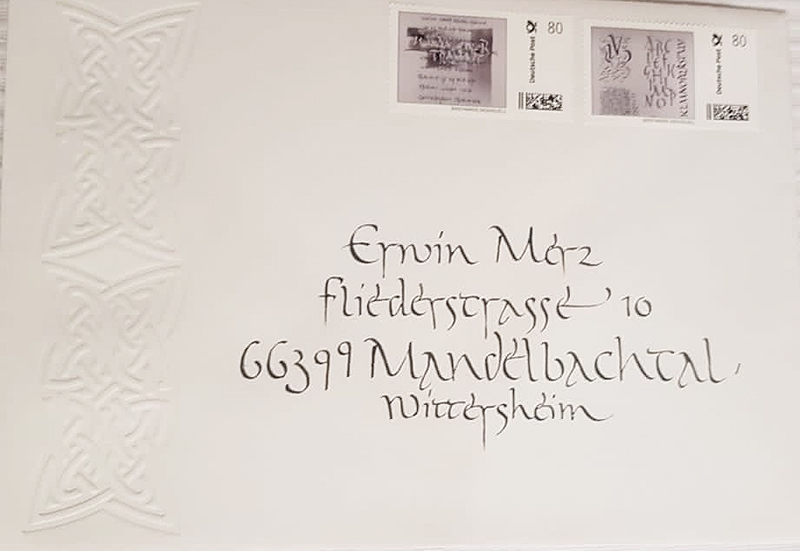 Deutsche Post 80
Deutsche Post 80
Erwin Merz
Fliederstrasse 10
66399 Mandelbachtal,
Wittersheim